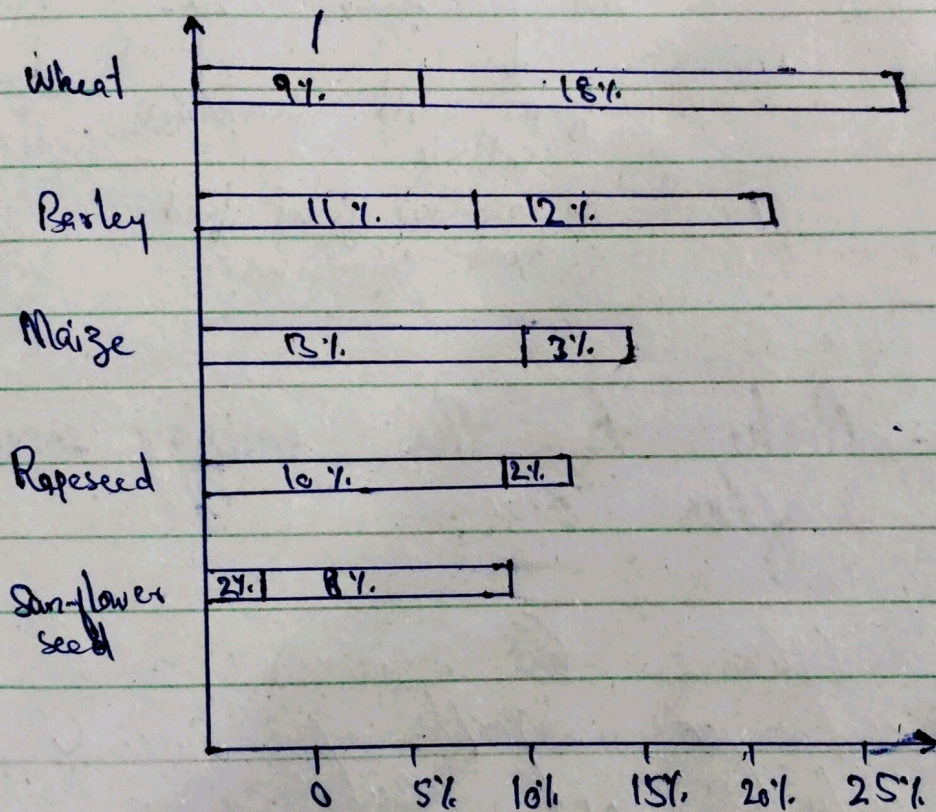 Wheat 9% 18%
Barley 11% 12%
Maize 13% 3%
Rapeseed 10% 2%
Sunflower 2% 8%
seed
0 5% 10% 15% 20% 25%